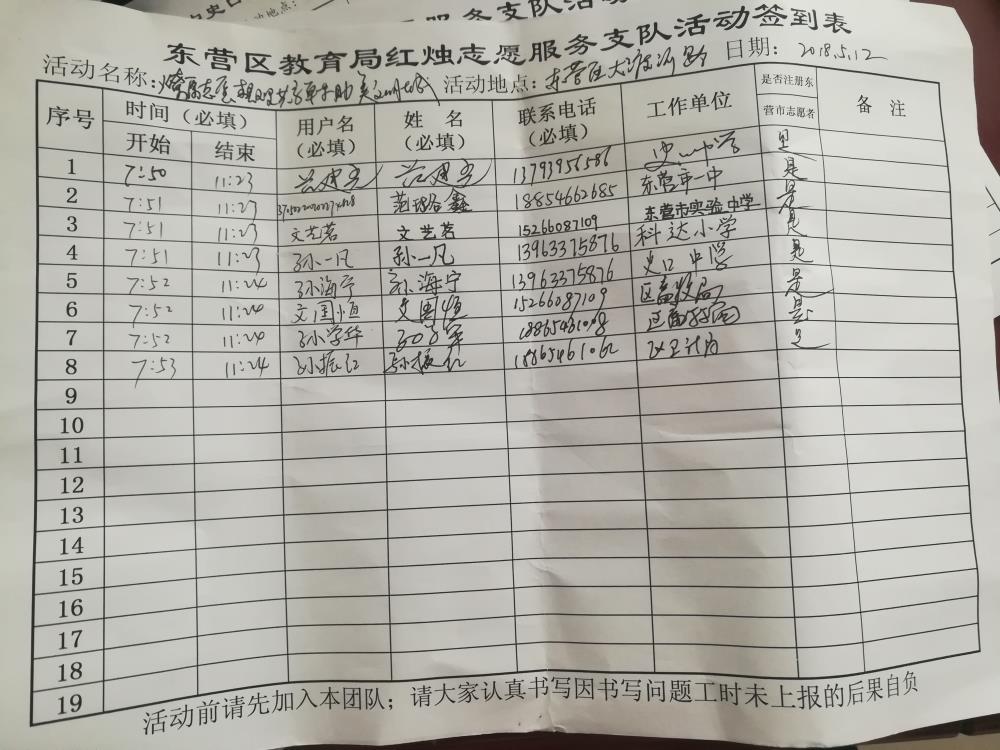 东营区教育局红烛志愿服务支队活动签到表
活动名称: 活动地点: 东营区大渡河路 日期: 2018.5.12
序号 时间（必填） 开始 结束 用户名（必填） 姓 名（必填） 联系电话（必填） 工作单位 是否注册东营市志愿者 备 注
1 7:50 11:23 范建亮 范建亮 13793956586 史口中学 是
2 7:51 11:23 范璐鑫 18854662685 东营市一中 是
3 7:51 11:23 文艺茗 文艺茗 15266087109 东营市实验中学 是
4 7:51 11:23 孙一凡 孙一凡 13963375876 科达小学 是
5 7:52 11:24 孙海宁 孙海宁 13963375876 史口中学 是
6 7:52 11:24 文国恒 文国恒 15266087109 区畜牧局 是
7 7:52 11:24 孙学华 是
8 7:53 11:24 孙振红 孙振红 18865461062 是
9
10
11
12
13
14
15
16
17
18
19
活动前请先加入本团队；请大家认真书写因书写问题工时未上报的后果自负